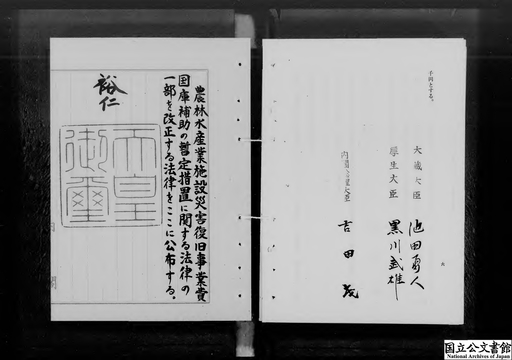 農林水産業施設災害復旧事業費
国庫補助の暫定措置に関する法律の
一部を改正する法律をここに公布する。
裕仁
天皇
御璽
千円とする。
大蔵大臣 池田勇人
厚生大臣 黒川武雄
内閣総理大臣 吉田茂
国立公文書館
National Archives of Japan